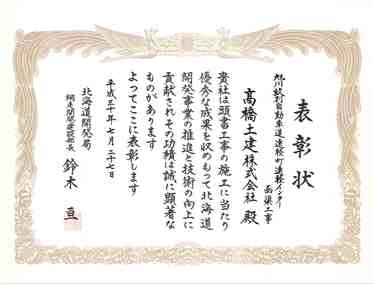 表彰状
旭川紋別自動車道遠軽町遠軽インター
函渠工事
高橋土建株式会社 殿
貴社は頭書工事の施工に当たり
優秀な成果を収めもって北海道
開発事業の推進と技術の向上に
貢献されその功績は誠に顕著な
ものがあります
よってここに表彰します
平成三十年七月二十七日
北海道開発局
網走開発建設部長 鈴木 亘